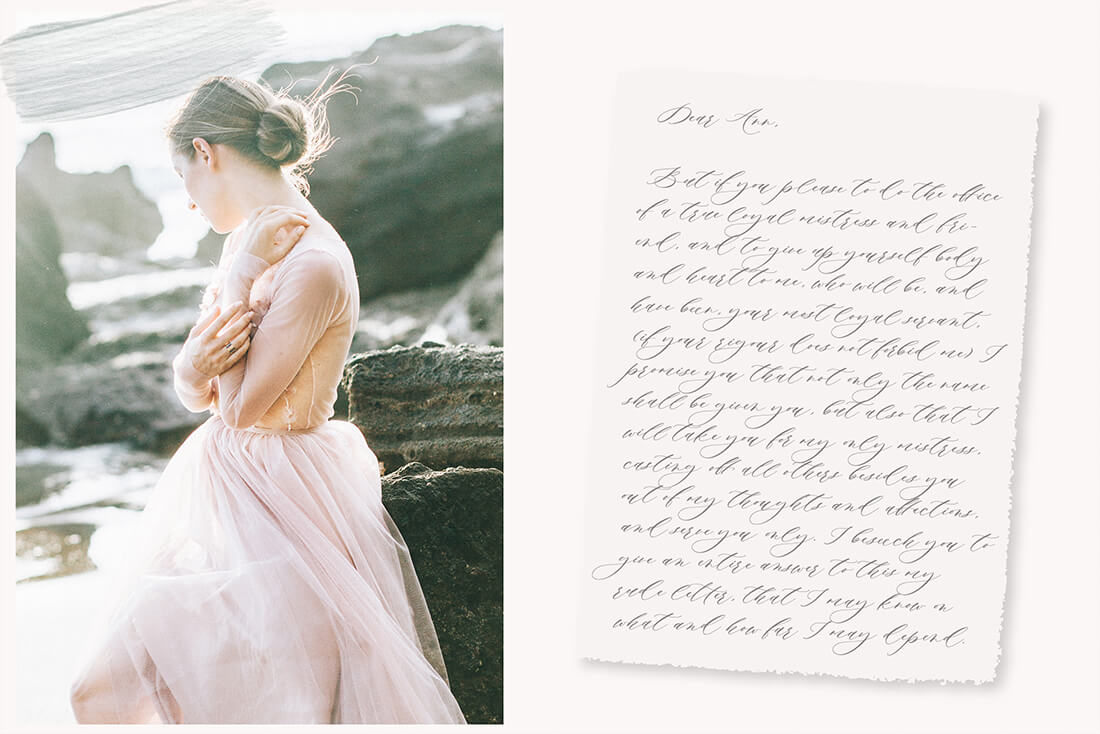 Dear Ann,
But if you please to do the office
of a true loyal mistress and fri-
end, and to give up yourself body
and heart to me, who will be, and
have been, your most loyal servant,
(if your rigour does not forbid me) I
promise you that not only the name
shall be given you, but also that I
will take you for my only mistress,
casting off all others besides you
out of my thoughts and affections,
and serve you only. I beseech you to
give an entire answer to this my
rude letter, that I may know on
what and how far I may depend.